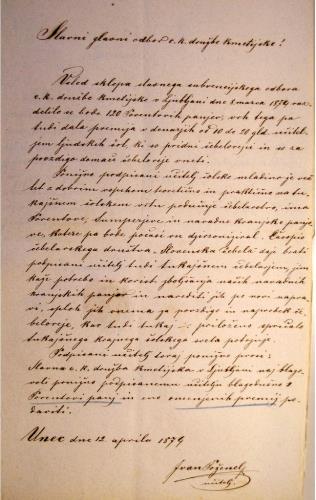 Slavni glavni odbor c. k. družbe kmetijske!
Vsled sklepa slavnega subvencijskega odbora
c. k. družbe kmetijske v Ljubljani dne 8. marca 1879 raz-
delilo se bode 120 Porentovih panjev, vrh tega pa
tudi dala premija v denarjih od 10 do 20 gld. učitel-
jem ljudskih šol, ki so pridni čebelorejci in se za
povzdigo domače čebeloreje vneti.
Ponižno podpisani učitelj šolsko mladino že več
let z dobrim vspehom teoretično in praktično na tu-
kajšnem šolskem vrtu podučuje čebelarstvo, ima
Porentove, in navadne kranjske panjo-
ve, katere pa bode počasi
čebelarskega društva "Slovenska čebela" daji brati
podpisani učitelj tudi tukajšnem čebelarjem, jim
kaže potrebo in korist zboljšanja naših navadnih
kranjskih panjov in narediti jih po novi napra-
vi, sploh jih vnema za povzdigo in napredek če-
beloreje, kar tudi tukaj priloženo spričalo
tukajšnega krajnega šolskega sveta potrjuje.
Podpisani učitelj torej ponižno prosi:
Slavna c. k. družba kmetijska v Ljubljani naj blago-
voli ponižno podpisanemu učitelju blagodušno 2
Porentovi panj in eno omenjenih premij po-
dariti.
Unec dne 12. aprila 1879
Ivan Poženel
učitelj